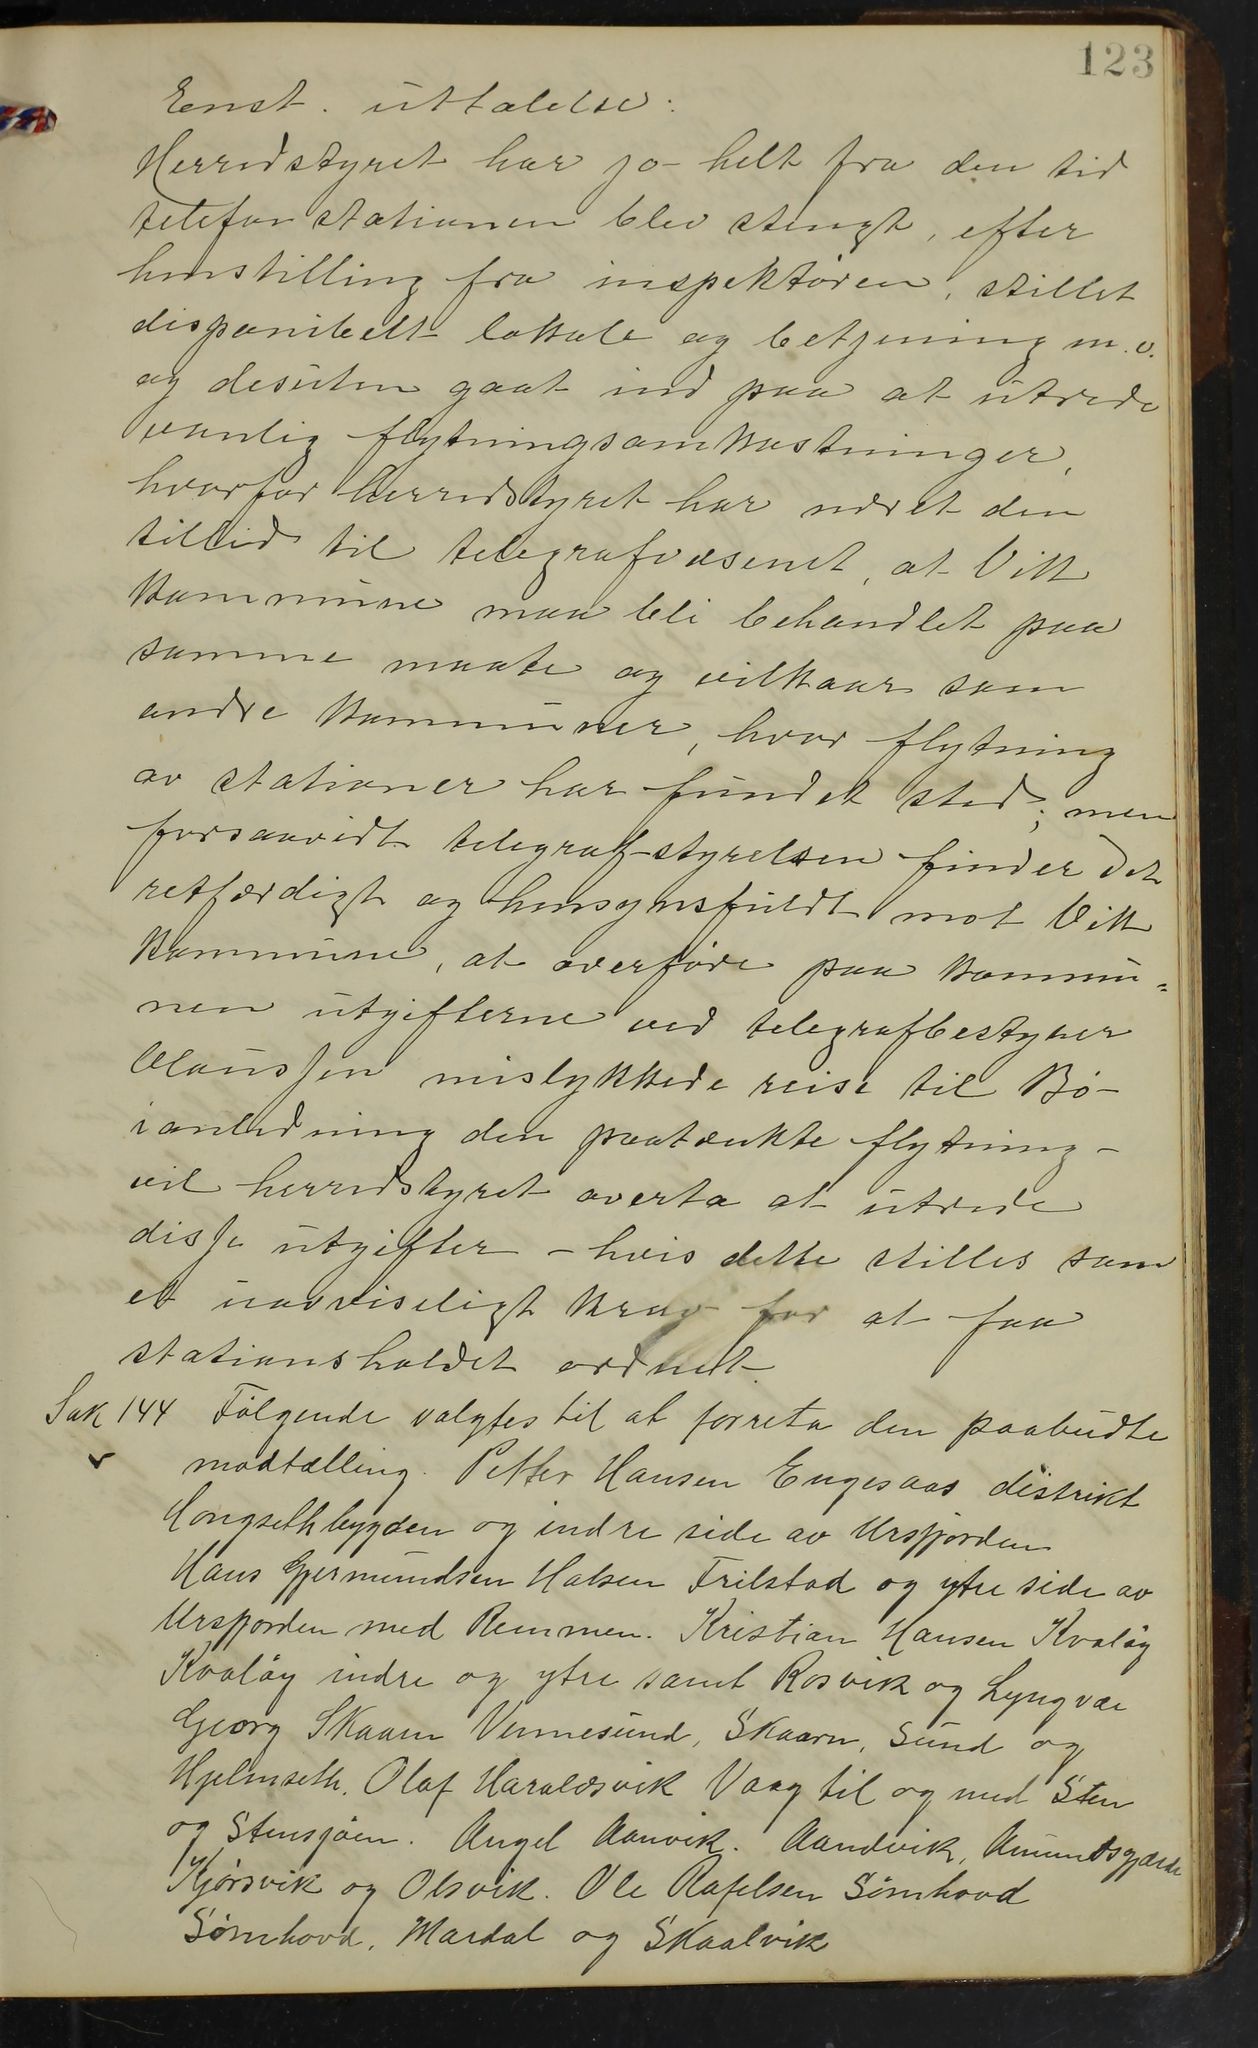 123
Enst. uttalelse:
Herredstyret har jo helt fra den tid
telefonstationen blev stengt, efter
henstilling fra inspektøren, stillet
disponibelt lokale og betjening m.v.
og desuten gaat ind paa at utrede
vanlig flytningsomkostninger,
hvorfor herredstyret har næret den
tillid til telegrafvæsenet, at Vik
kommune maa bli behandlet paa
samme maate og vilkaar som
andre kommuner, hvor flytning
av stationer har fundet sted; men
forsaavidt telegrafstyrelsen finder det
retfærdigt og hensynsfuldt mot Vik
kommune, at overføre paa kommu=
nen utgifterne ved telegrafbestyrer
Claussen mislykkede reise til Bø-
i anledning den paatænkte flytning -
vil herredstyret overta at utrede
disse utgifter - hvis dette stilles som
et uavviseligt krav for at faa
stationsholdet ordnet.
Sak 144 Følgende valgtes til at forreta den paabudte
modtælling. Petter Hansen Engesaas distrikt
Hongsethbygden og indre side av Ursfjorden
Hans Gjermundsen Halsen Trilstad og ytre side av
Ursfjorden med Remmen. Kristian Hansen Kvaløy
Kvaløy indre og ytre samt Rosvik og Lyngvær
Georg Skaarn Vennesund, Skaarn, Sund og
Hjelmseth. Olaf Haraldsvik Vaag til og med Sten
og Stensjøen. Angel Aanvik. Aandvik, Amundsgjærde
Kjørsvik og Olsvik. Ole Rafelsen Sømhovd
Sømhovd, Mardal og Skaalvik